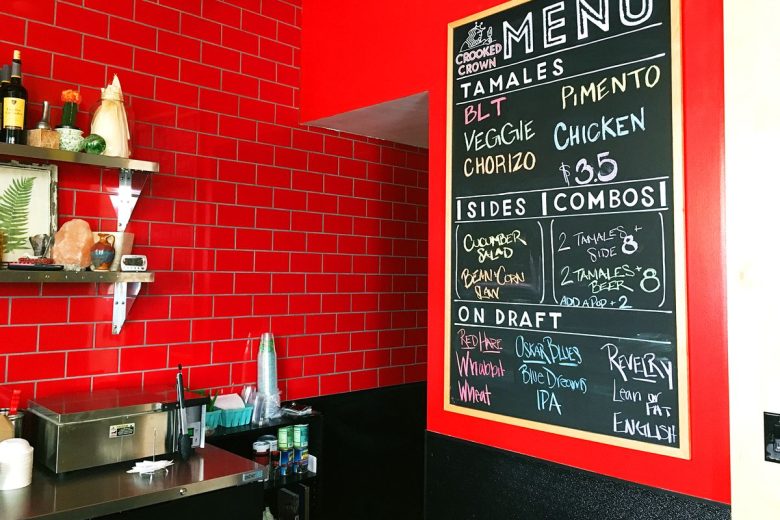 CROOKED
CROWN
MENU
TAMALES
BLT
VEGGIE
CHORIZO
PIMENTO
CHICKEN
$3.5
SIDES
CUCUMBER
SALAD
BEAN + CORN
SLAW
COMBOS
2 TAMALES +
SIDE 8
2 TAMALES +
BEER 8
ADD A POP + 2
ON DRAFT
RED HARE
Whabbit
Wheat
OSKAR BLUES
Blue Dreams
IPA
REVELRY
Lean or
FAT
ENGLISH